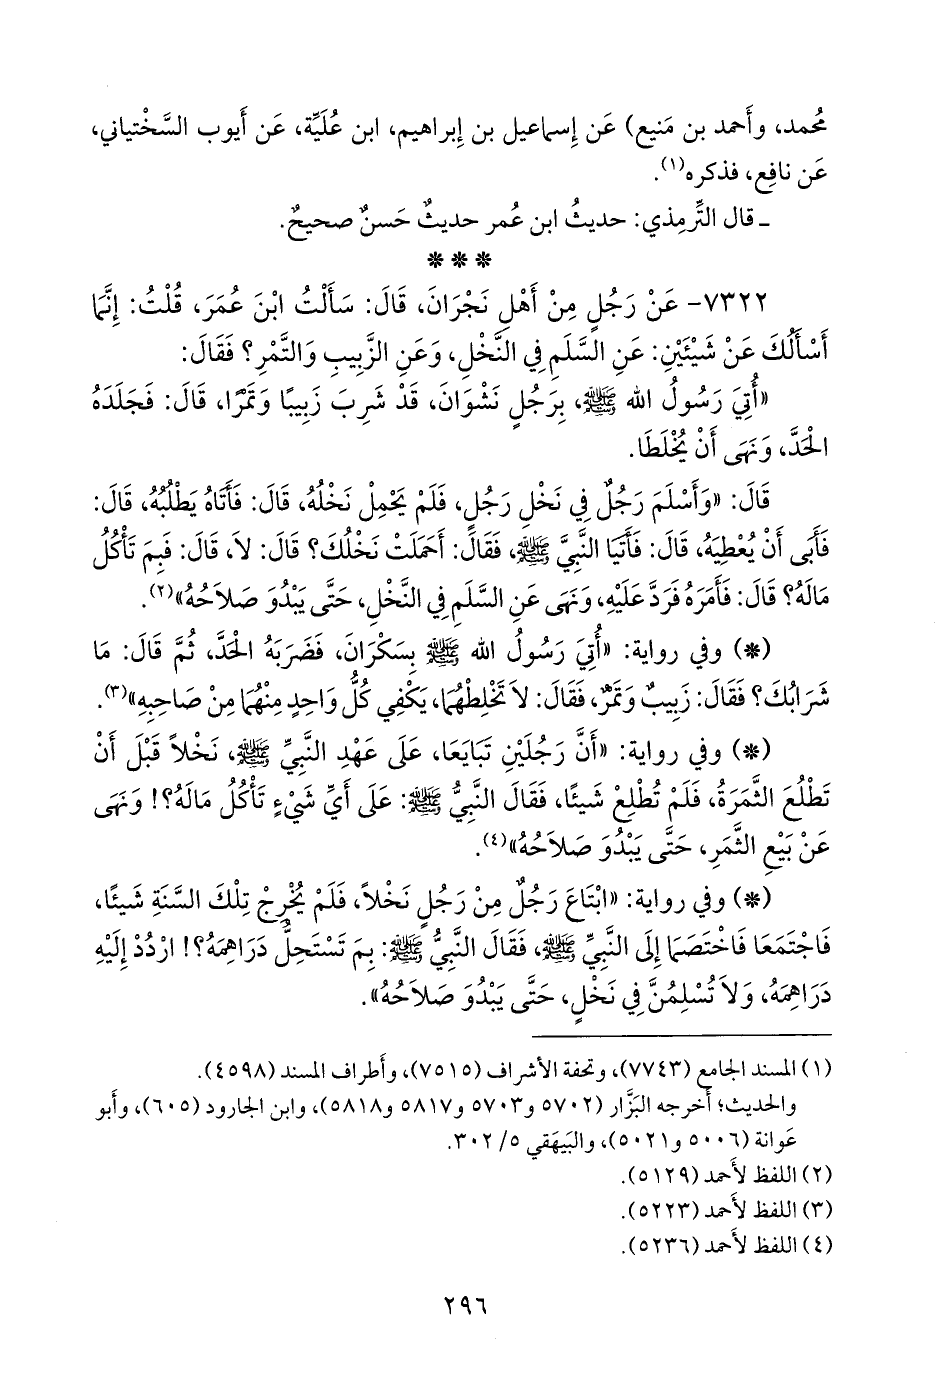 مُحمد، وأَحمد بن مَنيع) عَن إِسماعيل بن إِبراهيم، ابن عُلَيَّة، عَن أَيوب السَّخْتياني،
عَن نافِع، فذكره(١).
ـ قال التِّرمِذي: حديثُ ابن عُمر حديثٌ حَسنٌ صحيحٌ.
* * *
٧٣٢٢- عَنْ رَجُلٍ مِنْ أَهْلِ نَجْرَانَ، قَالَ: سَأَلْتُ ابْنَ عُمَرَ، قُلْتُ: إِنَّمَا
أَسْأَلُكَ عَنْ شَيْئَيْنِ: عَنِ السَّلَمِ فِي النَّخْلِ، وَعَنِ الزَّبِيبِ وَالتَّمْرِ؟ فَقَالَ:
«أُتِيَ رَسُولُ الله ﷺ، بِرَجُلٍ نَشْوَانَ، قَدْ شَرِبَ زَبِيبًا وَتَمْرًا، قَالَ: فَجَلَدَهُ
الْحَدَّ، وَنَهَى أَنْ يُخْلَطَا.
قَالَ: «وَأَسْلَمَ رَجُلٌ فِي نَخْلِ رَجُلٍ، فَلَمْ يَحْمِلْ نَخْلُهُ، قَالَ: فَأَتَاهُ يَطْلُبُهُ، قَالَ:
فَأَبَى أَنْ يُعْطِيَهُ، قَالَ: فَأَتَيَا النَّبِيَّ ﷺ، فَقَالَ: أَحَمَلَتْ نَخْلُكَ؟ قَالَ: لاَ، قَالَ: فَبِمَ تَأْكُلُ
مَالَهُ؟ قَالَ: فَأَمَرَهُ فَرَدَّ عَلَيْهِ، وَنَهَى عَنِ السَّلَمِ فِي النَّخْلِ، حَتَّى يَبْدُوَ صَلاَحُهُ»(٢).
(*) وفي رواية: «أُتِيَ رَسُولُ الله ﷺ بِسَكْرَانَ، فَضَرَبَهُ الْحَدَّ، ثُمَّ قَالَ: مَا
شَرَابُكَ؟ فَقَالَ: زَبِيبٌ وَتَمْرٌ، فَقَالَ: لاَ تَخْلِطْهُمَا، يَكْفِي كُلُّ وَاحِدٍ مِنْهُمَا مِنْ صَاحِبِهِ»(٣).
(*) وفي رواية: «أَنَّ رَجُلَيْنِ تَبَايَعَا، عَلَى عَهْدِ النَّبِيِّ ﷺ، نَخْلاً قَبْلَ أَنْ
تَطْلُعَ الثَّمَرَةُ، فَلَمْ تُطْلِعْ شَيئًا، فَقَالَ النَّبِيُّ ﷺ: عَلَى أَيِّ شَيْءٍ تَأْكُلُ مَالَهُ؟! وَنَهَى
عَنْ بَيْعِ الثَّمَرِ، حَتَّى يَبْدُوَ صَلاَحُهُ»(٤).
(*) وفي رواية: «ابْتَاعَ رَجُلٌ مِنْ رَجُلٍ نَخْلاً، فَلَمْ يُخْرِجْ تِلْكَ السَّنَةِ شَيئًا،
فَاجْتَمَعَا فَاخْتَصَمَا إِلَى النَّبِيِّ ﷺ، فَقَالَ النَّبِيُّ ﷺ: بِمَ تَسْتَحِلُّ دَرَاهِمَهُ؟! ارْدُدْ إِلَيْهِ
دَرَاهِمَهُ، وَلاَ تُسْلِمُنَّ فِي نَخْلٍ، حَتَّى يَبْدُوَ صَلاَحُهُ».
(١) المسند الجامع (٧٧٤٣)، وتحفة الأشراف (٧٥١٥)، وأطراف المسند (٤٥٩٨).
والحديث؛ أَخرجه البَزَّار (٥٧٠٢ و٥٧٠٣ و٥٨١٧ و٥٨١٨)، وابن الجارود (٦٠٥)، وأَبو
عَوانة (٥٠٠٦ و٥٠٢١)، والبَيهَقي ٥/ ٣٠٢.
(٢) اللفظ لأَحمد (٥١٢٩).
(٣) اللفظ لأَحمد (٥٢٢٣).
(٤) اللفظ لأَحمد (٥٢٣٦).
٢٩٦